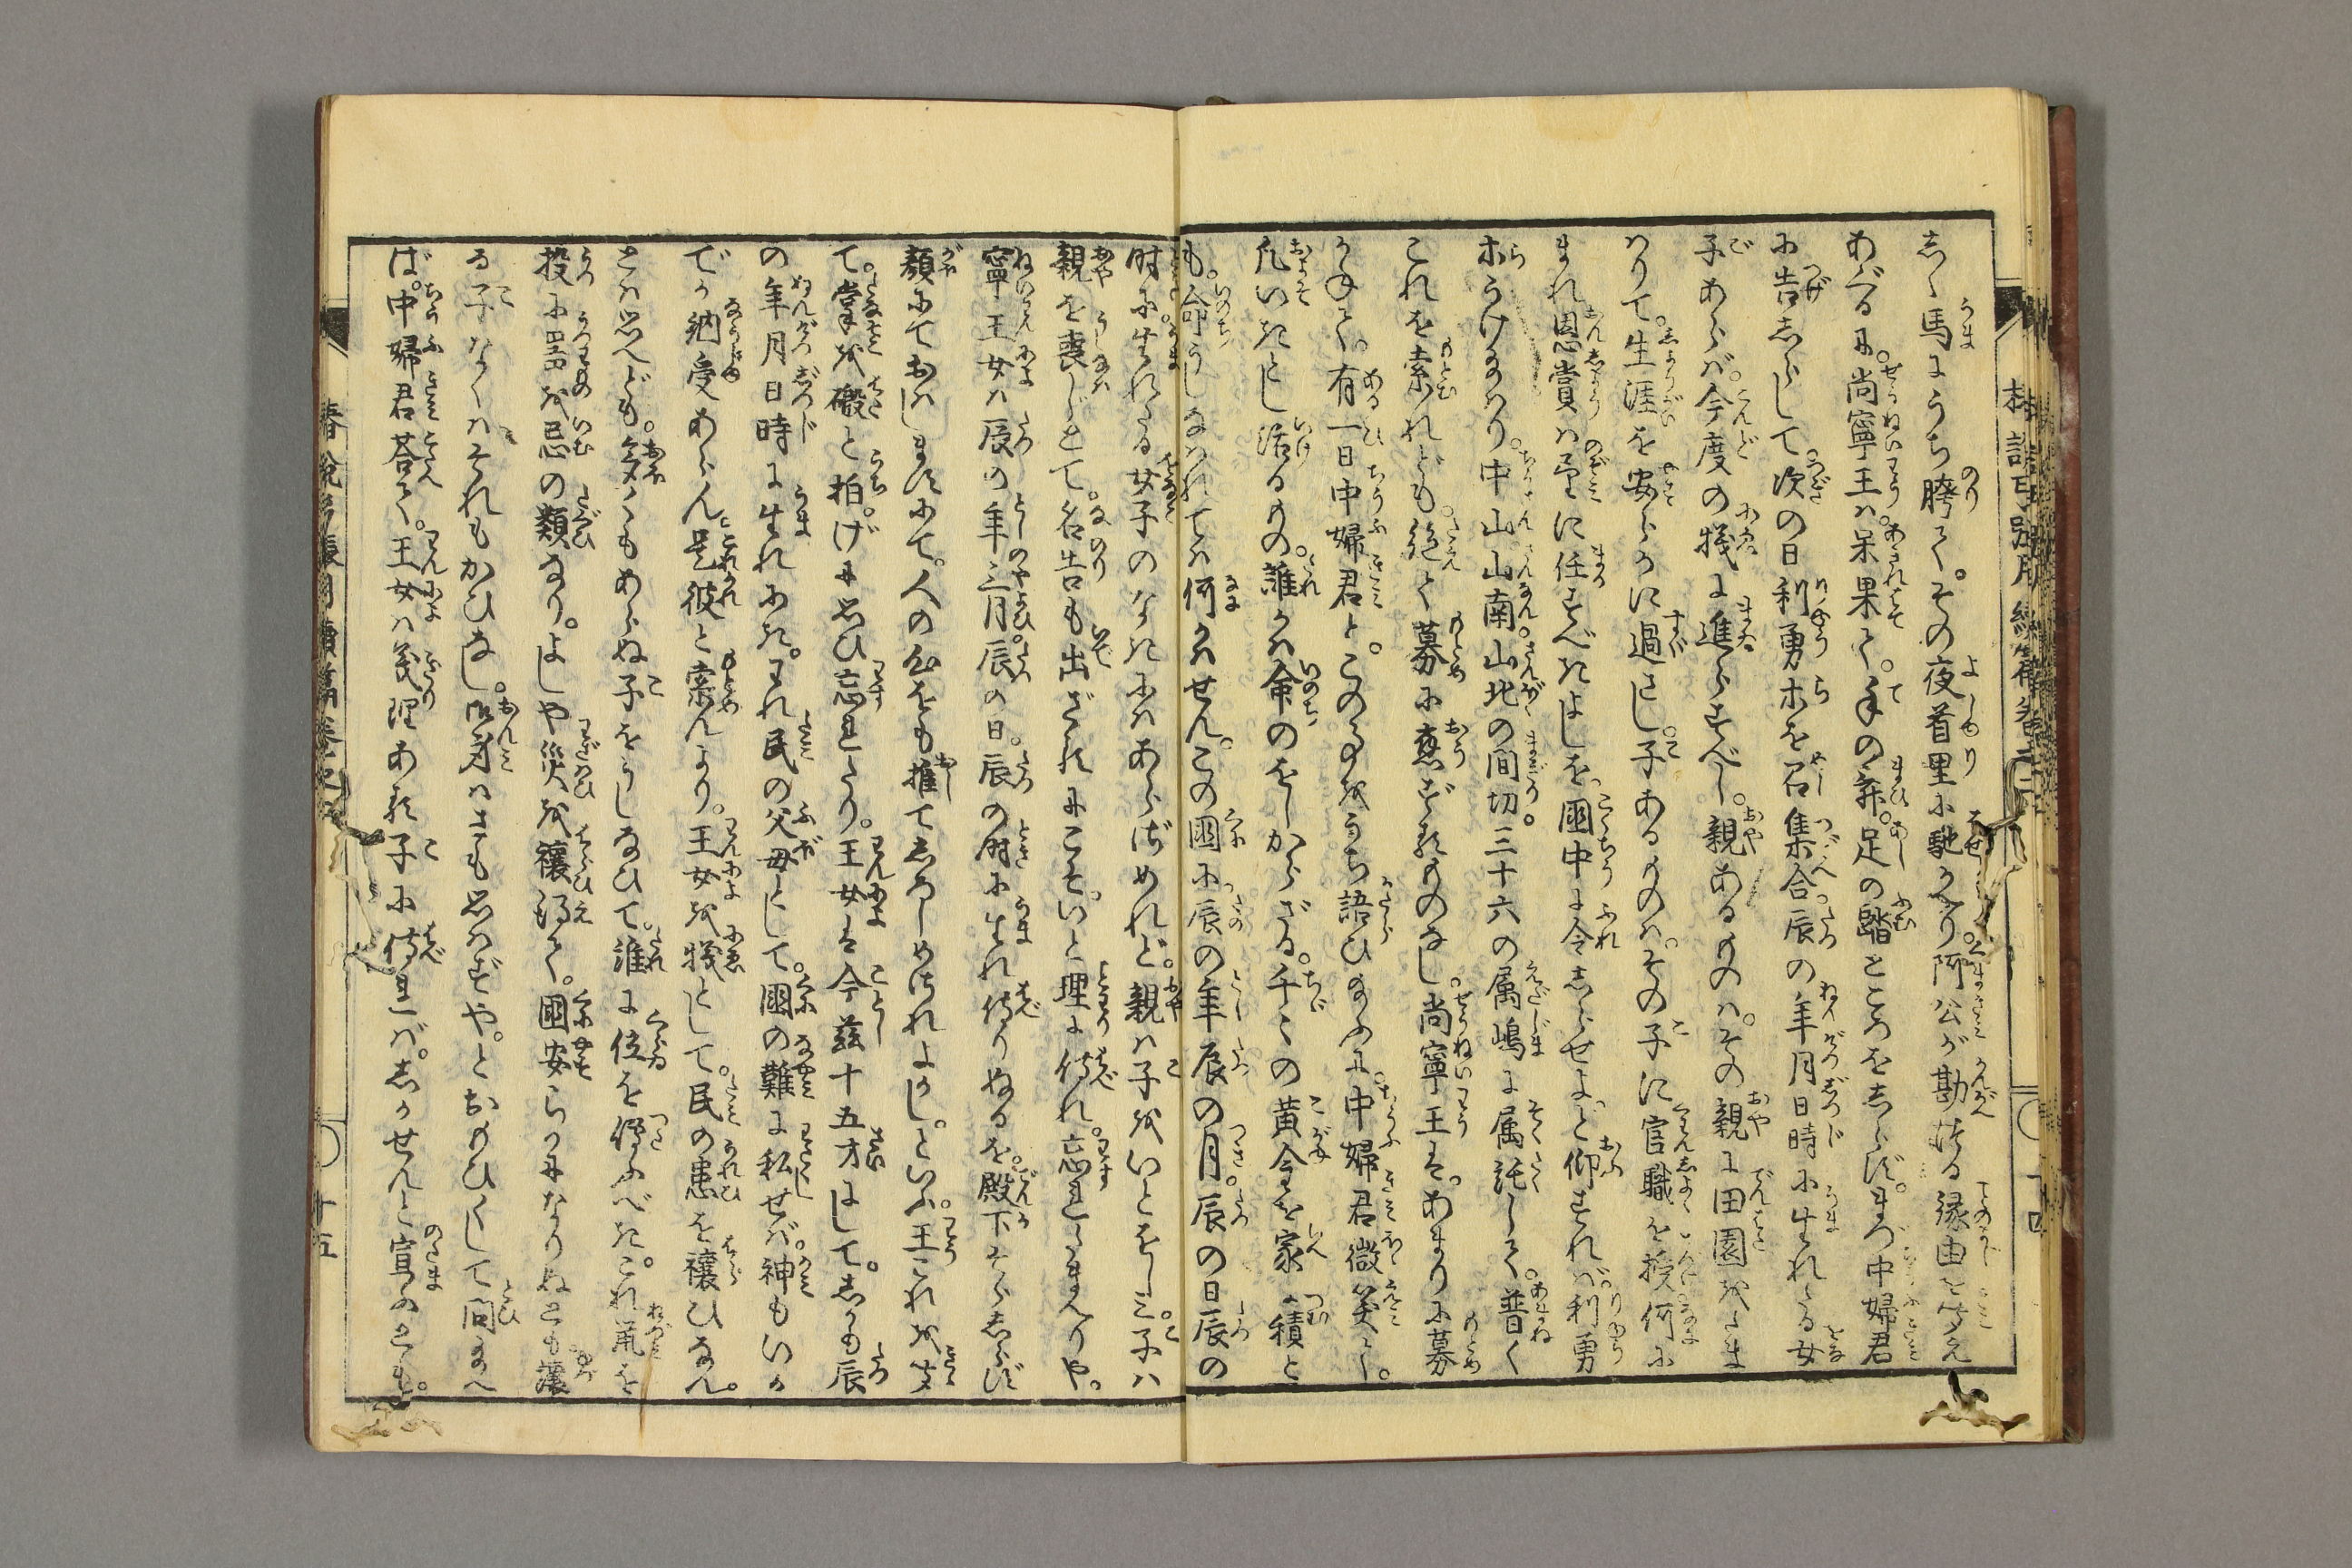 しく馬にうち騎て。その夜首里に馳かへり。阿公が勘得る縁由を聞え
あぐるに。尚寧王は呆果て。手の舞。足の踏ところをしらず。まづ中婦君
に告しらして。次の日利勇ホを召集合。辰の年月日時に生れたる女
子あらば。今度の犠に進らすべし。親あるものは。その親に田園をたま
はりて。生涯を安らかに過さし。子あるものは。その子に官職を授。何に
まれ恩賞は望に任すべきよしを。國中に令しらせよ。と仰すれば。利勇
ホうけ給はり。中山山南山北の間切。三十六の属嶋に属託して。普く
これを索れども。絶て募に應ずるものなし。尚寧王は。あまりに募
かねて。有一日中婦君と。このことをうち語ひ給ふに。中婦君微笑て。
凡いきとし活るもの。誰かは命のをしからざる。千々の黄金を家に積と
も。命うしなはれては何かはせん。この國に辰の年辰の月。辰の日辰の
時に生れたる女子のなきにはあらずめれど。親は子をいとをしみ。子は
親を喪じとて。名告も出ざるにこそ。いと理に侍れ。忘れたまへりや。
寧王女は辰の年三月辰の日。辰の時に生れ侍りぬるを。殿下そらしらず
顔にておはしますにて。人の心をも推てしろしめされよかし。といふ。王これを聞
て。掌を礑と拍。げに思ひ忘れたり。王女は今茲十五才にして。しかも辰
の年月日時に生れにき。われ民の父母として。國の難に私せば。神もいか
でか納受あらん。是彼と索んより。王女を犠として。民の患を禳ひなん。
とは思へども。多くもあらぬ子をうしなひて。誰に位を傳ふべき。これ鼠を
投に器を忌の類なり。よしや災を禳得て。國安らかになりぬとも。讓
る子なくはそれもかひなし。御身はさも思はずや。とおのひくして問給へ
ば。中婦君荅て。王女は義理ある子に侍れば。しかせんと宣ふとも。